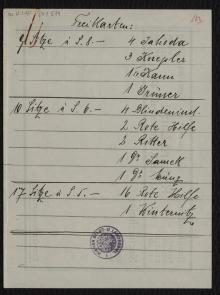 Freikarten:
9 Sitze à S. 8.— 4 Jahoda
3 Knepler
1 Kann
1 Grüner
10 Sitze à S. 6.— 4 Blindeninst.
2 Rote Hilfe
2 Ritter
1 Dr Samek
1 Dr Münz
17 Sitze à S. 5.— 16 Rote Hilfe
1 Winternitz